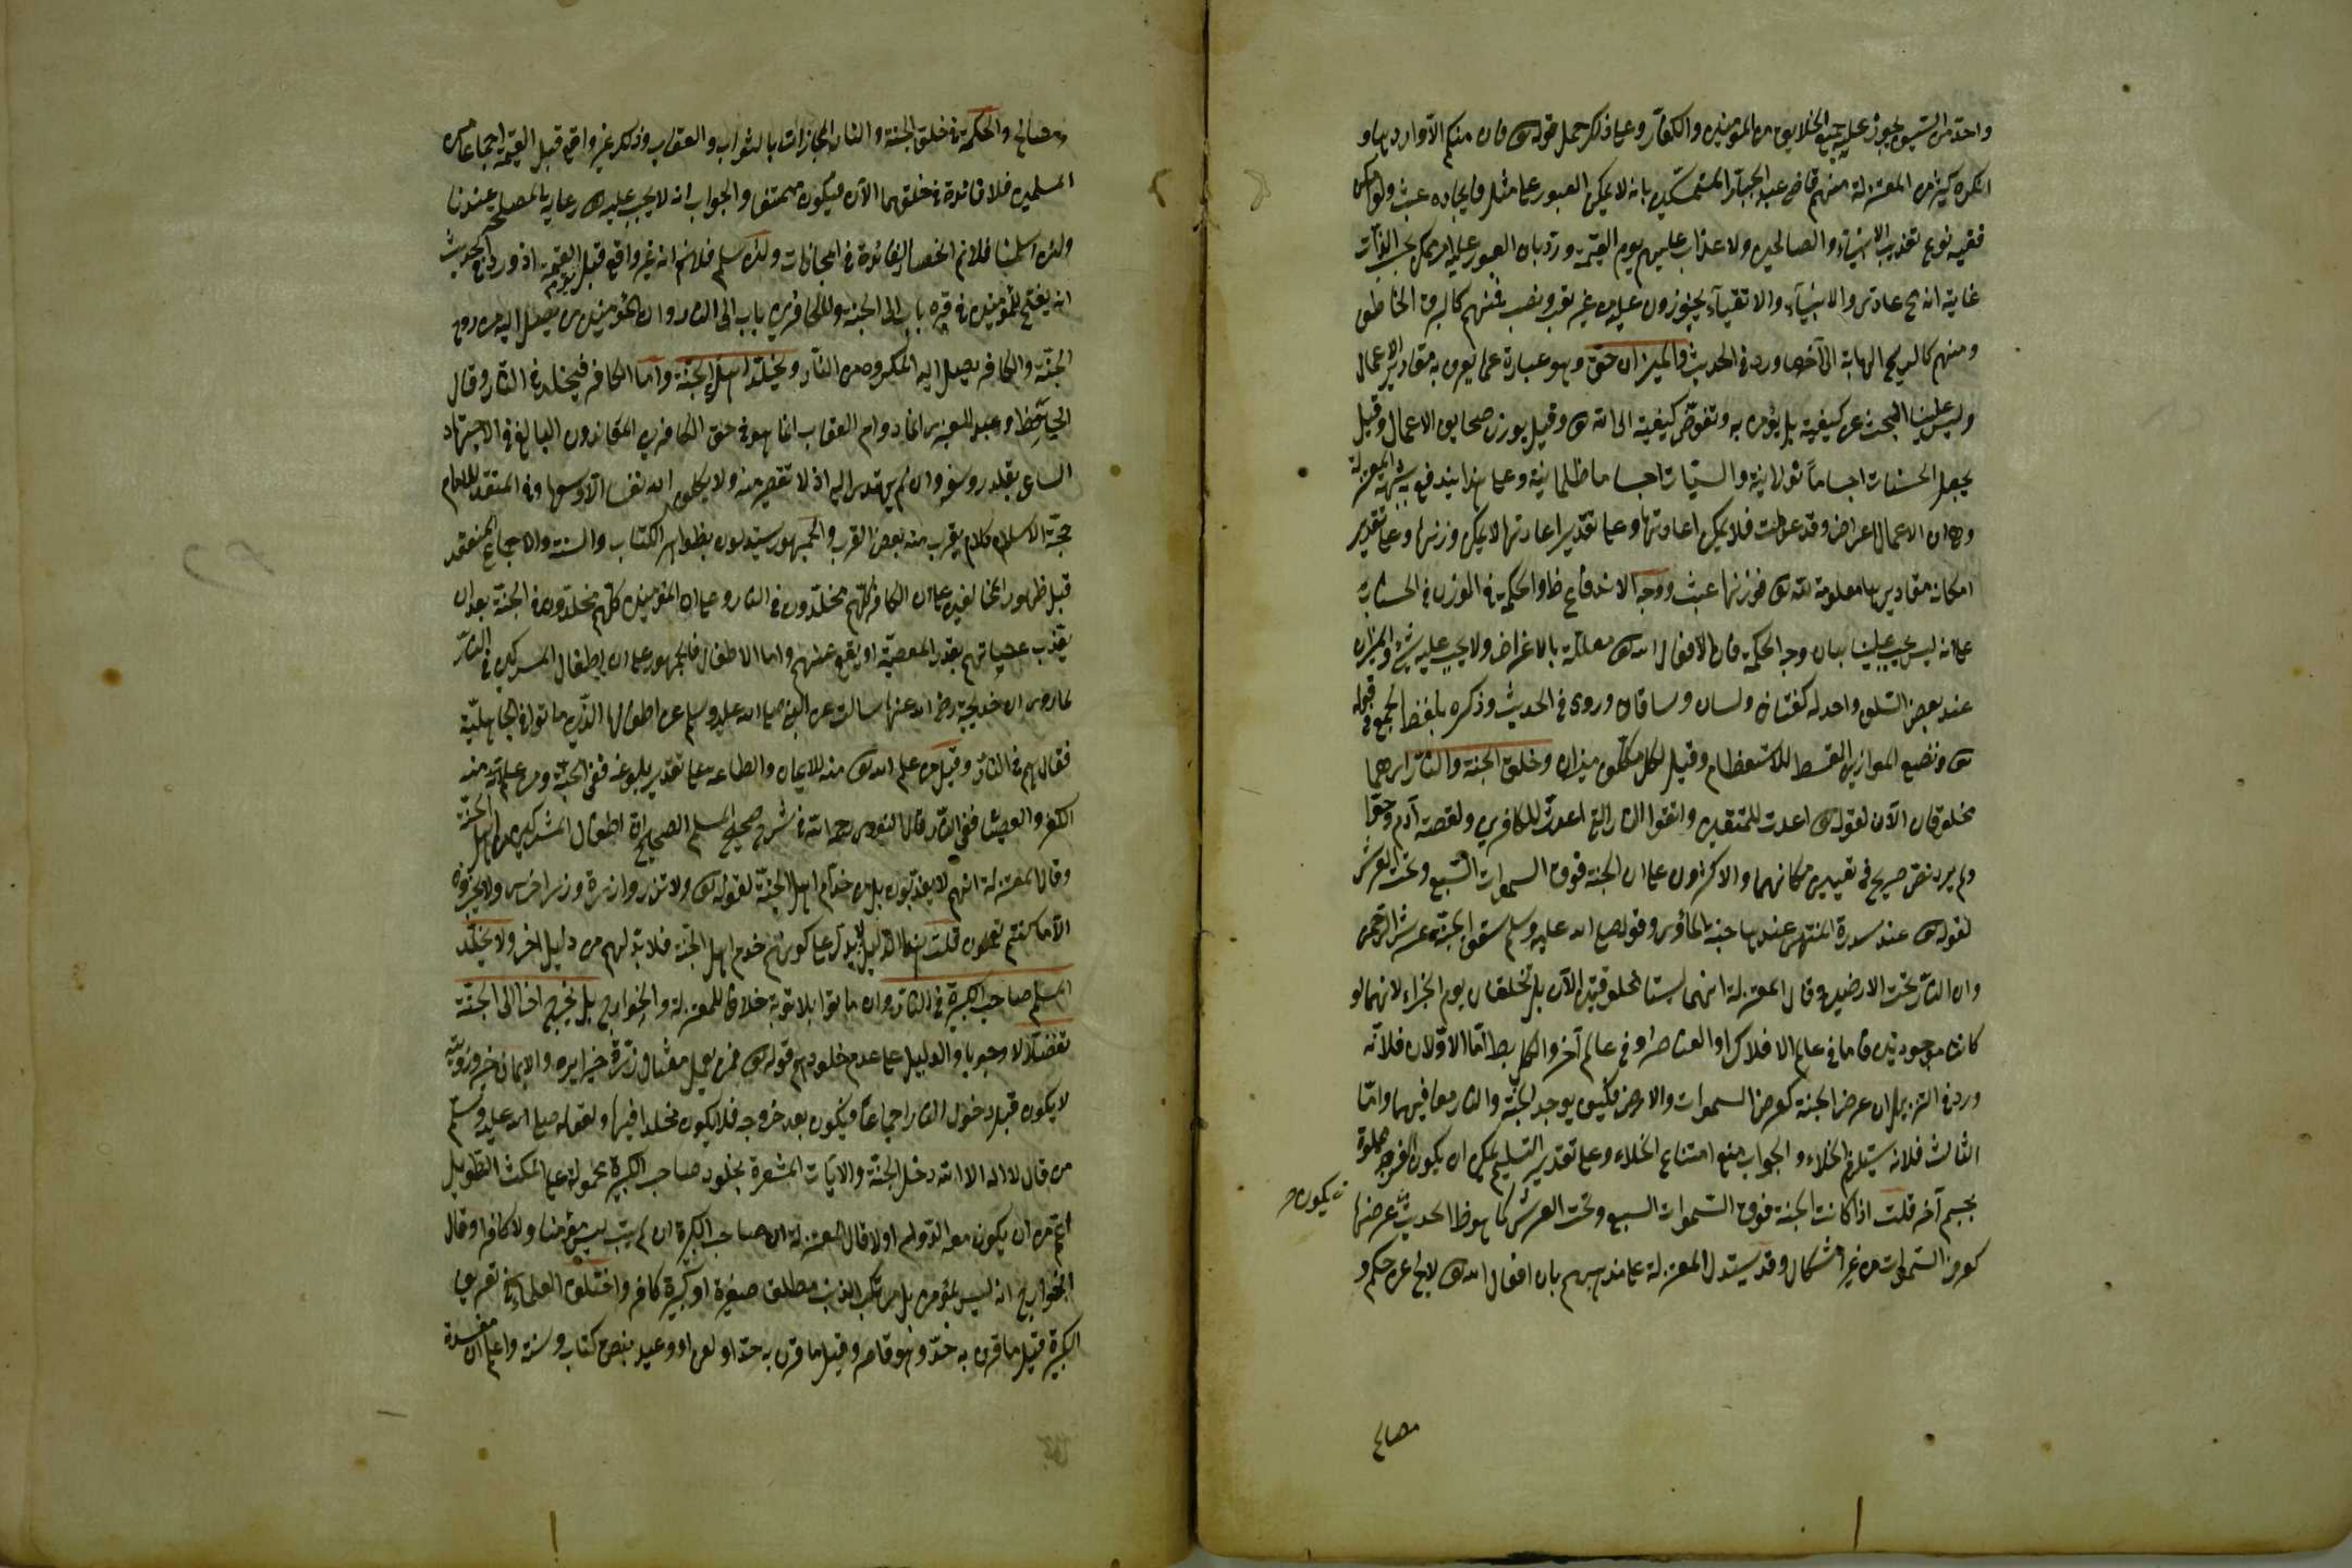 واحد من السيف يجوز عليه جميع الخلايق من المؤمنين والكفار وعليا ذلك حمل قوله تع وان منكم الا واردها و
انكره كثير من المعتزلة منهم قاضى عبد الجبار المتمسكين بانه لا يمكن العبور على مثله فايجاده عبث ولو امكن
ففيه نوع تعذيب الانبياء والصالحين ولا عذاب عليهم يوم القيمة ورد بان العبور عليه امر ممكن بحسب الذات
غاية انه مح عادى والانبياء والاتقياء يجوزون عليه من غير تعب ونصب فمنهم كالبرق الخاطف
ومنهم كالريح الهابة الى آخر ما ورد فى الحديث والميزان حق وهو عبارة عما يعرف به مقادير الاعمال
وليس علينا البحث عن كيفيته بل نؤمن به ونفوض كيفيته الى الله تع وقيل يوزن صحايف الاعمال وقيل
يجعل الحسنات اجساما نورانية والسيات اجساما ظلمانية وعلى هذا يندفع شبهة المعتزلة
وهى ان الاعمال اعراض وقد عدمت فلا يمكن اعادتها وعلى تقدير اعادتها لا يمكن وزنها وعلى تقدير
امكانه مقاديرها معلومة لله تع فوزنها عبث ووجه الاندفاع ظ والحكمة فى الوزن فى الحساب
على انه ليس يجب علينا بيان وجه الحكمة فان الافعال الله تع معللة بالاغراض ولا يجب عليه شئ والميزان
عند بعض السلف واحد له كفتان ولسان وساقان وروى فى الحديث وذكره بلفظ الجمع فى قوله
تع ونضع الموازين القسط للاستعظام وقيل لكل مكلف ميزان وخلق الجنة والنار اى هما
مخلوقان الآن لقوله تع اعدت للمتقين واتقوا النار التى اعدت للكافرين ولقصة آدم وحوا
ولم يرد نص صريح فى تعيين مكانهما والاكثرون على ان الجنة فوق السموات السبع وتحت العرش
لقوله تع عند سدرة المنتهى عندها جنة المأوى وقوله صلى الله عليه وسلم سقف الجنة عرش الرحمن
وان النار تحت الارضين وقال المعتزلة انهما ليستا مخلوقتين الآن بل تخلقان يوم الجزاء لانهما لو
كانتا موجودتين فاما فى عالم الافلاك او العناصر او فى عالم آخر والكل بط اما الاولان فلانه
ورد فى التنزيل ان عرض الجنة كعرض السموات والارض فكيف يوجد الجنة والنار معا فيهما واما
الثالث فلانه يستلزم الخلاء والجواب منع امتناع الخلاء وعلى تقدير التسليم يمكن ان يكون الفرج مملوة
بجسم آخر قلت اذا كانت الجنة فوق السموات السبع وتحت العرش كما هو ظ الحديث عرضها
يكون
كعرض السموات من غير اشكال وقد يستدل المعتزلة على مذهبهم بان افعال الله تع لا يخ عن حكم و
مصالح
ومصالح والحكمة فى خلق الجنة والنار المجازات بالثواب والعقاب وذلك غير واقع قبل القيمة اجماعا من
المسلمين فلا فائدة فى خلقهما الآن فيكون ممتنعا والجواب انه لا يجب عليه تع رعاية المصلحة عندنا
ولئن سلمنا فلانم انحصار الفائدة فى المجازات ولئن سلم فلانم انه غير واقع قبل يوم القيمة اذ ورد فى الحديث
انه يفتح للمؤمنين فى قبره باب الى الجنة وللكافرين باب الى النار وان المؤمنين يصل اليه من روح
الجنة والكافر يصل اليه المكروه من النار ويخلد اهل الجنة واما الكافر فيخلد فى النار وقال
الجاحظ وعبد الله العنبرى انما دوام العقاب انما هو فى حق الكافرين المعاندون البالغ فى الاجتهاد
الساعى بقدر وسعه وان لم يهتدى اليه اذ لا تقصير منه ولا يكلف الله نفسا الا وسعها وفى المنقذ للامام
حجة الاسلام كلام يقرب منه بعض القرب والجمهور يستدلون بظواهر الكتاب والسنة والاجماع المنعقد
قبل ظهور المخالفين على ان الكافر كلهم مخلدون فى النار وعلى ان المؤمنين كلهم مخلدون فى الجنة بعد ان
يعذب عصياتهم بقدر المعصية او يقع عنهم واما الاطفال فالجمهور على ان اطفال المشركين فى النار
لما روى ان خديجة رضى الله عنها سالت عن النبى صلى الله عليه وسلم عن اطفالها الذين ماتوا فى الجاهلية
فقال هم فى النار وقيل من علم الله تع منه الايمان والطاعة على تقدير بلوغه ففى الجنة ومن علم منه
الكفر والعصيان ففى النار قال النووى رحمه الله فى شرح صحيح المسلم الصحيح ان اطفال المشركين من اهل الجنة
وقال المعتزلة انهم لا يعذبون بل هم خدام اهل الجنة لقوله تع ولا تزر وازرة وزر اخرى ولا تجزون
الا ما كنتم تعملون قلت هذا الدليل لا يدل على كونهم خدم اهل الجنة فلا بد لهم من دليل اخر ولا يخلد
المسلم صاحب الكبيرة فى النار وان ماتوا بلا توبة خلافا للمعتزلة والخوارج بل يخرج اخرا الى الجنة
تفضلا لا وجوبا والدليل على عدم خلودهم قوله تع فمن يعمل مثقال ذرة خيرا يره والايمان خير ورؤيته
لا يكون قبل دخول النار اجماعا فيكون بعد خروجه فلا يكون مخلدا فيها ولقوله صلى الله عليه وسلم
من قال لا اله الا الله دخل الجنة والايات المشعرة بخلود صاحب الكبيرة محمولة على المكث الطويل
اعم من ان يكون معه الدوام اولا قال المعتزلة ان صاحب الكبيرة ان لم يتب ليس مؤمنا ولا كافرا وقال
الخوارج انه ليس بمؤمن بل مرتكب الذنب مطلقا صغيرة او كبيرة كافر واختلف العلماء فى تعريف
الكبيرة فقيل ما قرن به حد وهو قاصر وقيل ما قرن به حد او لعن او وعيد بنص كتاب وسنة واعلم ان مفسدة